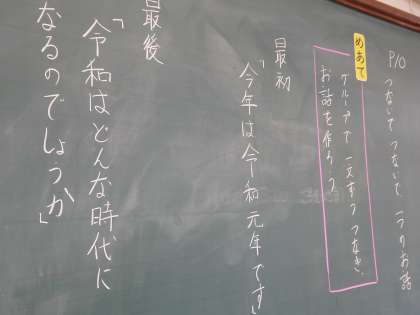 P10 つないで つないで 一つのお話
めあて
グループで 一文ずつ つなぎ、
お話を作ろう
最初
「今年は令和元年です」
最後
「令和はどんな時代に
なるのでしょうか」